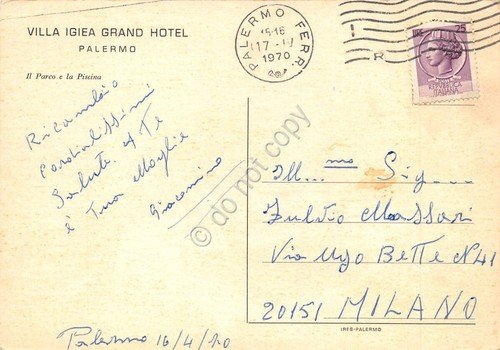 VILLA IGIEA GRAND HOTEL
PALERMO
Il Parco e la Piscina
PALERMO FERR.
15-16
17 -IV
1970
LIRE 25
REPUBBLICA
ITALIANA
Ricambio
cordialissimi
Saluti a Te
e Tua Moglie
Giacomino
Palermo 16/4/70
Ill...mo Sig...
Fulvio Massari
Via Ugo Betti N 41
20151 MILANO
IRES-PALERMO
do not copy